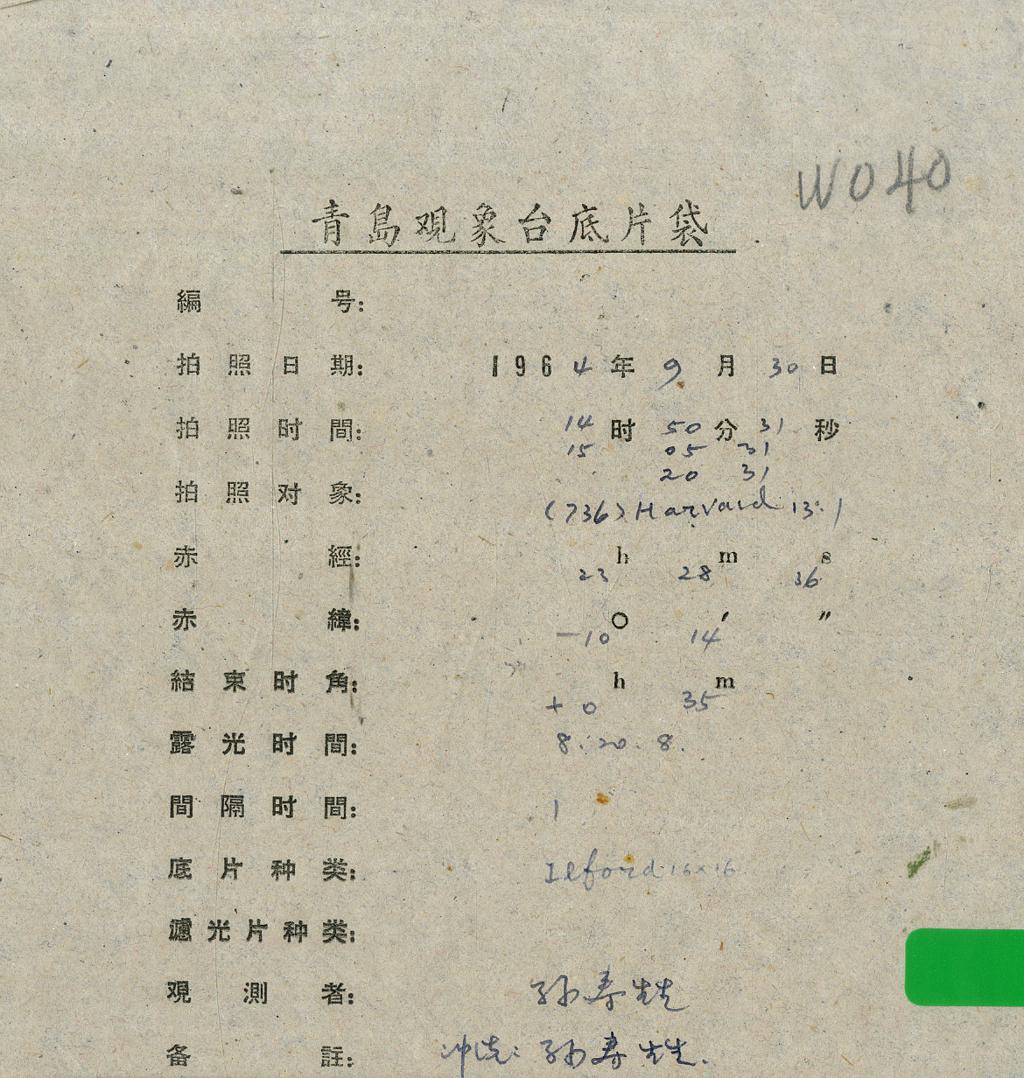 W040
青島观象台底片袋
編号:
拍照日期: 1964年9月30日
拍照时間: 14时50分31秒
15 05 31
20 31
拍照对象: (736) Harvard 13.1
赤經: 23h 28m 36s
赤緯: -10° 14′ ″
結束时角: +0h 35m
露光时間: 8. 20. 8.
間隔时間: 1
底片种类: Ilford 16×16
濾光片种类:
观測者: 孙寿
备註: 冲洗: 孙寿